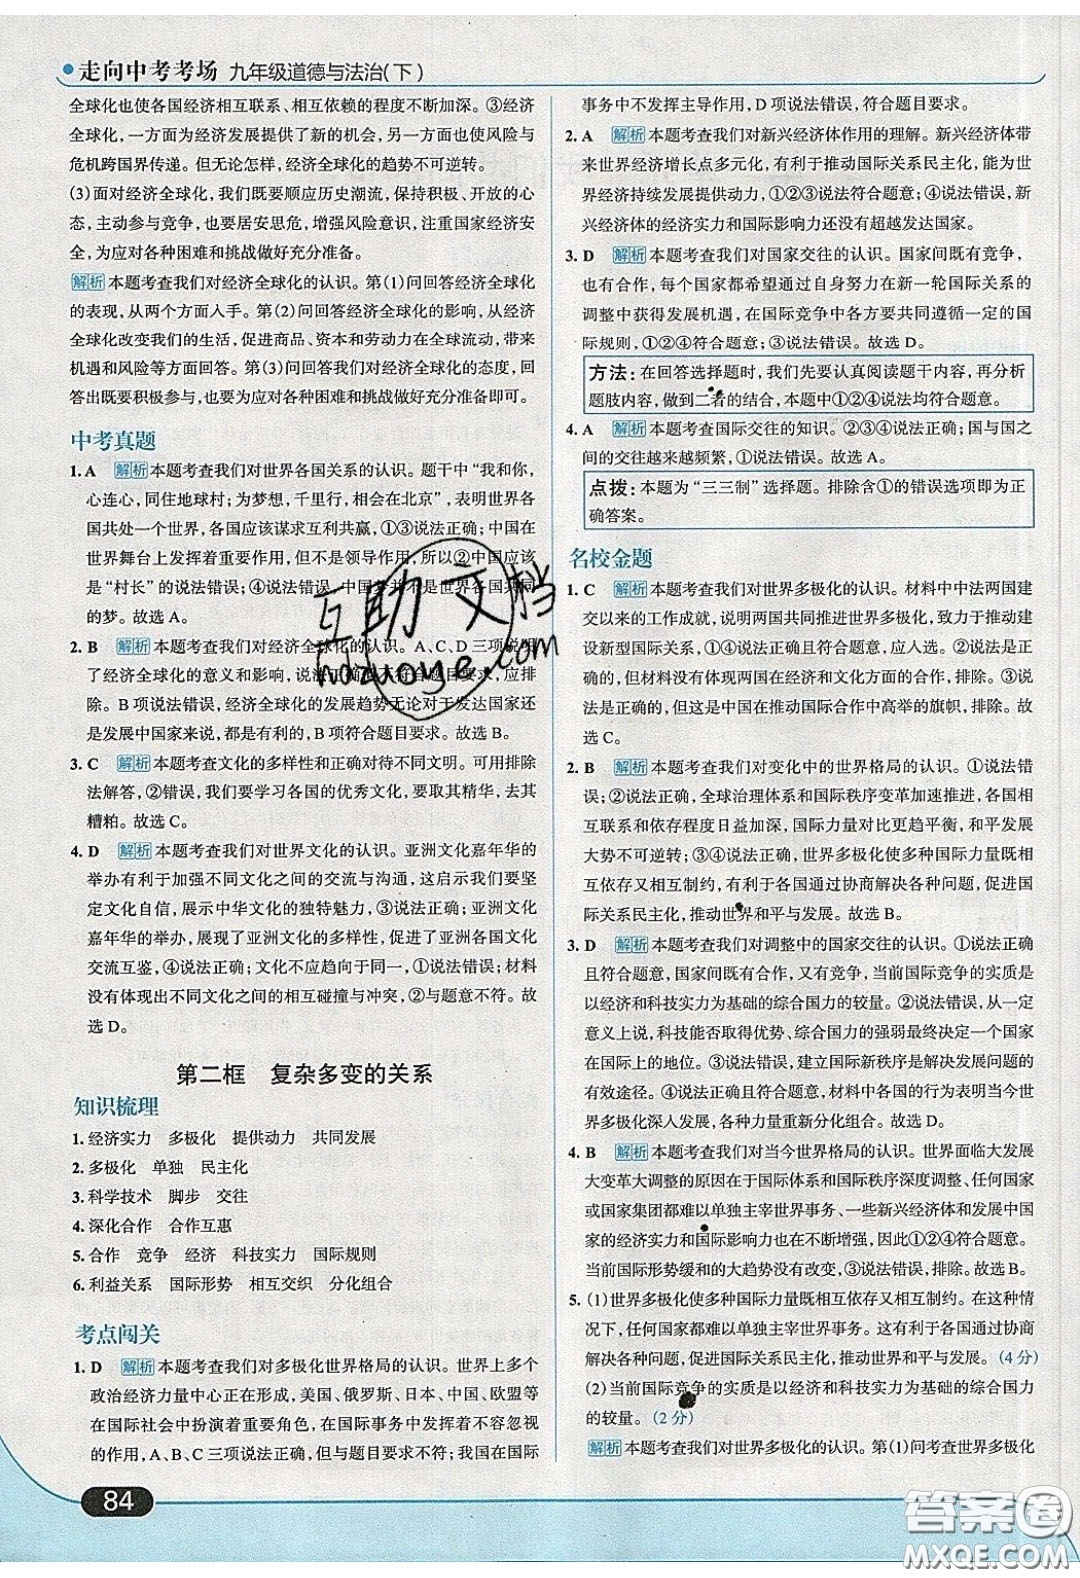 走向中考考场 九年级道德与法治(下)
全球化也使各国经济相互联系、相互依赖的程度不断加深。③经济
全球化,一方面为经济发展提供了新的机会,另一方面也使风险与
危机跨国界传递。但无论怎样,经济全球化的趋势不可逆转。
(3)面对经济全球化,我们既要顺应历史潮流,保持积极、开放的心
态,主动参与竞争,也要居安思危,增强风险意识,注重国家经济安
全,为应对各种困难和挑战做好充分准备。
解析 本题考查我们对经济全球化的认识。第(1)问回答经济全球化
的表现,从两个方面入手。第(2)问回答经济全球化的影响,从经济
全球化改变我们的生活,促进商品、资本和劳动力在全球流动,带来
机遇和风险等方面回答。第(3)问回答我们对经济全球化的态度,回
答出既要积极参与,也要为应对各种困难和挑战做好充分准备即可。
中考真题
1. A 解析 本题考查我们对世界各国关系的认识。题干中“我和你,
心连心,同住地球村;为梦想,千里行,相会在北京”,表明世界各
国共处一个世界,各国应该谋求互利共赢,①③说法正确;中国在
世界舞台上发挥着重要作用,但不是领导作用,所以②中国应该
是“村长”的说法错误;④说法错误,中国梦并不是世界各国共同
的梦。故选 A。
2. B 解析 本题考查我们对经济全球化的认识。A、C、D 三项说明
了经济全球化的意义和影响,说法正确但不符合题目要求,应排
除。B 项说法错误,经济全球化的发展趋势无论对于发达国家还
是发展中国家来说,都是有利的,B 项符合题目要求。故选 B。
3. C 解析 本题考查文化的多样性和正确对待不同文明。可用排除
法解答,②错误,我们要学习各国的优秀文化,要取其精华,去其
糟粕。故选 C。
4. D 解析 本题考查我们对世界文化的认识。亚洲文化嘉年华的
举办有利于加强不同文化之间的交流与沟通,这启示我们要坚
定文化自信,展示中华文化的独特魅力,③说法正确;亚洲文化
嘉年华的举办,展现了亚洲文化的多样性,促进了亚洲各国文化
交流互鉴,④说法正确;文化不应趋向于同一,①说法错误;材料
没有体现出不同文化之间的相互碰撞与冲突,②与题意不符。故
选 D。
第二框 复杂多变的关系
知识梳理
1. 经济实力 多极化 提供动力 共同发展
2. 多极化 单独 民主化
3. 科学技术 脚步 交往
4. 深化合作 合作互惠
5. 合作 竞争 经济 科技实力 国际规则
6. 利益关系 国际形势 相互交织 分化组合
考点闯关
1. D 解析 本题考查我们对多极化世界格局的认识。世界上多个
政治经济力量中心正在形成,美国、俄罗斯、日本、中国、欧盟等
在国际社会中扮演着重要角色,在国际事务中发挥着不容忽视
的作用,A、B、C 三项说法正确,但与题目要求不符;我国在国际
事务中不发挥主导作用,D 项说法错误,符合题目要求。
2. A 解析 本题考查我们对新兴经济体作用的理解。新兴经济体带
来世界经济增长点多元化,有利于推动国际关系民主化,能为世
界经济持续发展提供动力,①②③说法符合题意;④说法错误,新
兴经济体的经济实力和国际影响力还没有超越发达国家。
3. D 解析 本题考查我们对国家交往的认识。国家间既有竞争,
也有合作,每个国家都希望通过自身努力在新一轮国际关系的
调整中获得发展机遇,在国际竞争中各方要共同遵循一定的国
际规则,①②④符合题意;③说法错误。故选 D。
方法:在回答选择题时,我们先要认真阅读题干内容,再分析
题肢内容,做到二者的结合,本题中①②④说法均符合题意。
4. A 解析 本题考查国际交往的知识。②③④说法正确;国与国之
间的交往越来越频繁,①说法错误。故选 A。
点拨:本题为“三三制”选择题。排除含①的错误选项即为正
确答案。
名校金题
1. C 解析 本题考查我们对世界多极化的认识。材料中中法两国建
交以来的工作成就,说明两国共同推进世界多极化,致力于推动建
设新型国际关系,①④说法正确且符合题意,应入选。②说法是正
确的,但材料没有体现两国在经济和文化方面的合作,排除。③说
法是正确的,但这是中国在推动国际合作中高举的旗帜,排除。故
选 C。
2. B 解析 本题考查我们对变化中的世界格局的认识。①说法错
误;②说法正确,全球治理体系和国际秩序变革加速推进,各国相
互联系和依存程度日益加深,国际力量对比更趋平衡,和平发展
大势不可逆转;③④说法正确,世界多极化使多种国际力量既相
互依存又相互制约,有利于各国通过协商解决各种问题,促进国
际关系民主化,推动世界和平与发展。故选 B。
3. D 解析 本题考查我们对调整中的国家交往的认识。①说法正确
且符合题意,国家间既有合作,又有竞争,当前国际竞争的实质是
以经济和科技实力为基础的综合国力的较量。②说法错误,从一定
意义上说,科技能否取得优势、综合国力的强弱最终决定一个国家
在国际上的地位。③说法错误,建立国际新秩序是解决发展问题的
有效途径。④说法符合题意,材料中各国的行为表明当今世界
多极化深入发展,各种力量重新分化组合。故选 D。
4. B 解析 本题考查我们对当今世界格局的认识。世界面临大发展
大变革大调整的原因在于国际体系和国际秩序深度调整、任何国家
或国家集团都难以单独主宰世界事务、一些新兴经济体和发展中国
家的经济实力和国际影响力也在不断增强,因此①②④符合题意。
当前国际形势缓和的大趋势没有改变,③说法错误,排除。故选 B。
5. (1)世界多极化使多种国际力量既相互依存又相互制约。在这种情
况下,任何国家都难以单独主宰世界事务。这有利于各国通过协商
解决各种问题,促进国际关系民主化,推动世界和平与发展。(4 分)
(2)当前国际竞争的实质是以经济和科技实力为基础的综合国力
的较量。(2 分)
解析 本题考查我们对世界多极化的认识。第(1)问考查世界多极化
84
互助文档
hdzuoye.com
答案圈
MXQE.COM